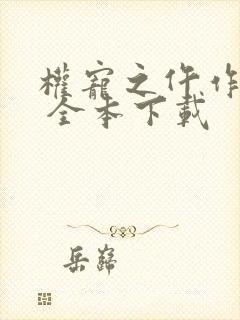 權寵之仵作
全本下載
岳歸